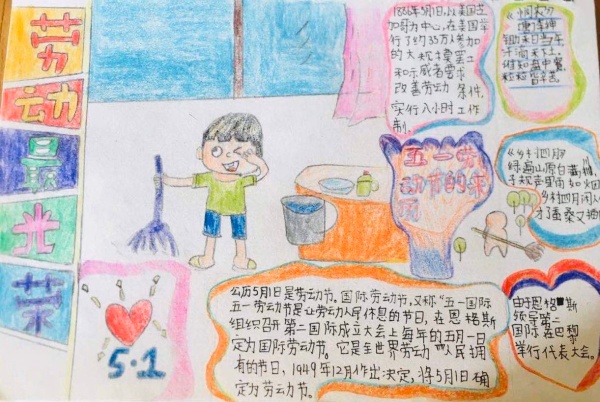 劳
动
最
光
荣
1886年5月1日,以美国芝
加哥为中心,在美国举
行了约35万人参加
的大规模罢工
和示威者要求
改善劳动条件,
实行八小时工作
制。
《悯农》
唐 李绅
锄禾日当午
汗滴禾下土
谁知盘中餐
粒粒皆辛苦
五一劳
动节的来
历
《乡村四月》
绿遍山原白满川,
子规声里雨如烟
乡村四月闲人
才了蚕桑又插
5·1
公历5月1日是劳动节。国际劳动节,又称“五一国际
五一劳动节是让劳动人民休息的节日,在恩格斯
组织召开第二国际成立大会上每年的五月一日
定为国际劳动节。它是全世界劳动人民拥
有的节日,1949年12月作出决定,将5月1日确
定为劳动节。
由于恩格斯
领导第二
国际在巴黎
举行代表大会。